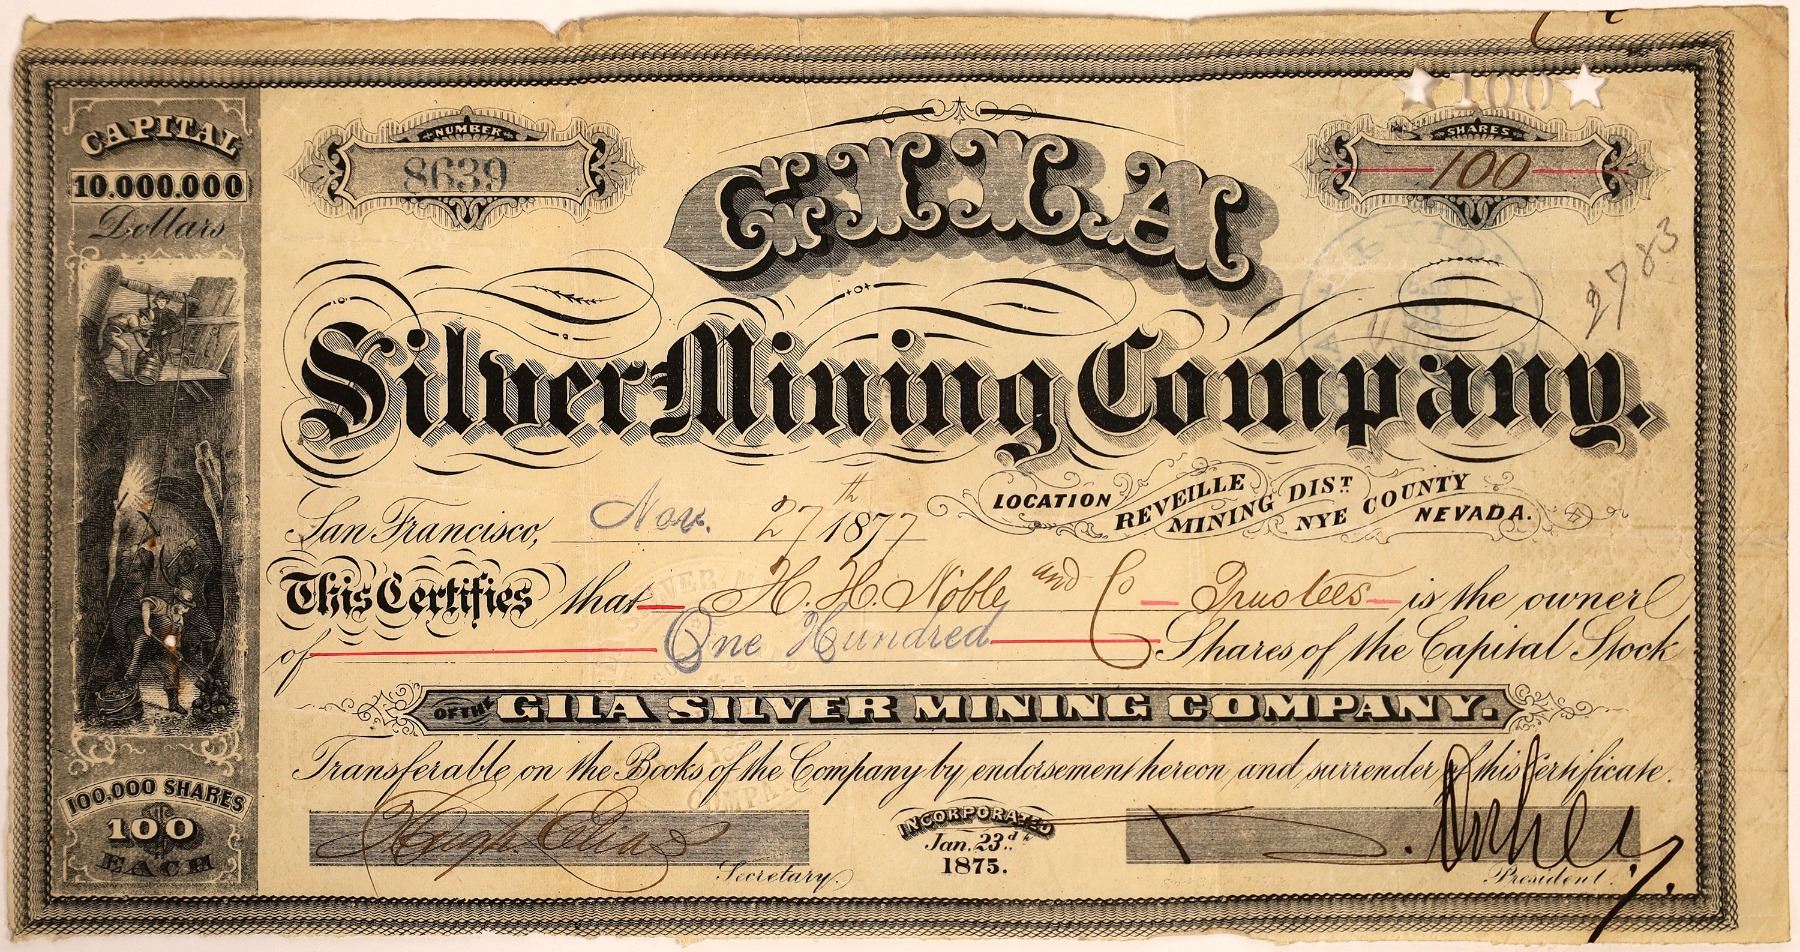 ★100★
CAPITAL
10.000.000
Dollars
NUMBER
8639
SHARES
100
2783
GILA
Silver Mining Company.
LOCATION REVEILLE MINING DIST. NYE COUNTY NEVADA.
San Francisco, Nov. 27th 1877
This Certifies that H. H. Noble and Co Trustees is the owner
of One Hundred Shares of the Capital Stock
OF THE GILA SILVER MINING COMPANY.
Transferable on the Books of the Company by endorsement hereon and surrender of this Certificate.
100,000 SHARES
100
EACH
Hugh Elias
Secretary.
INCORPORATED
Jan. 23d.
1875.
President.